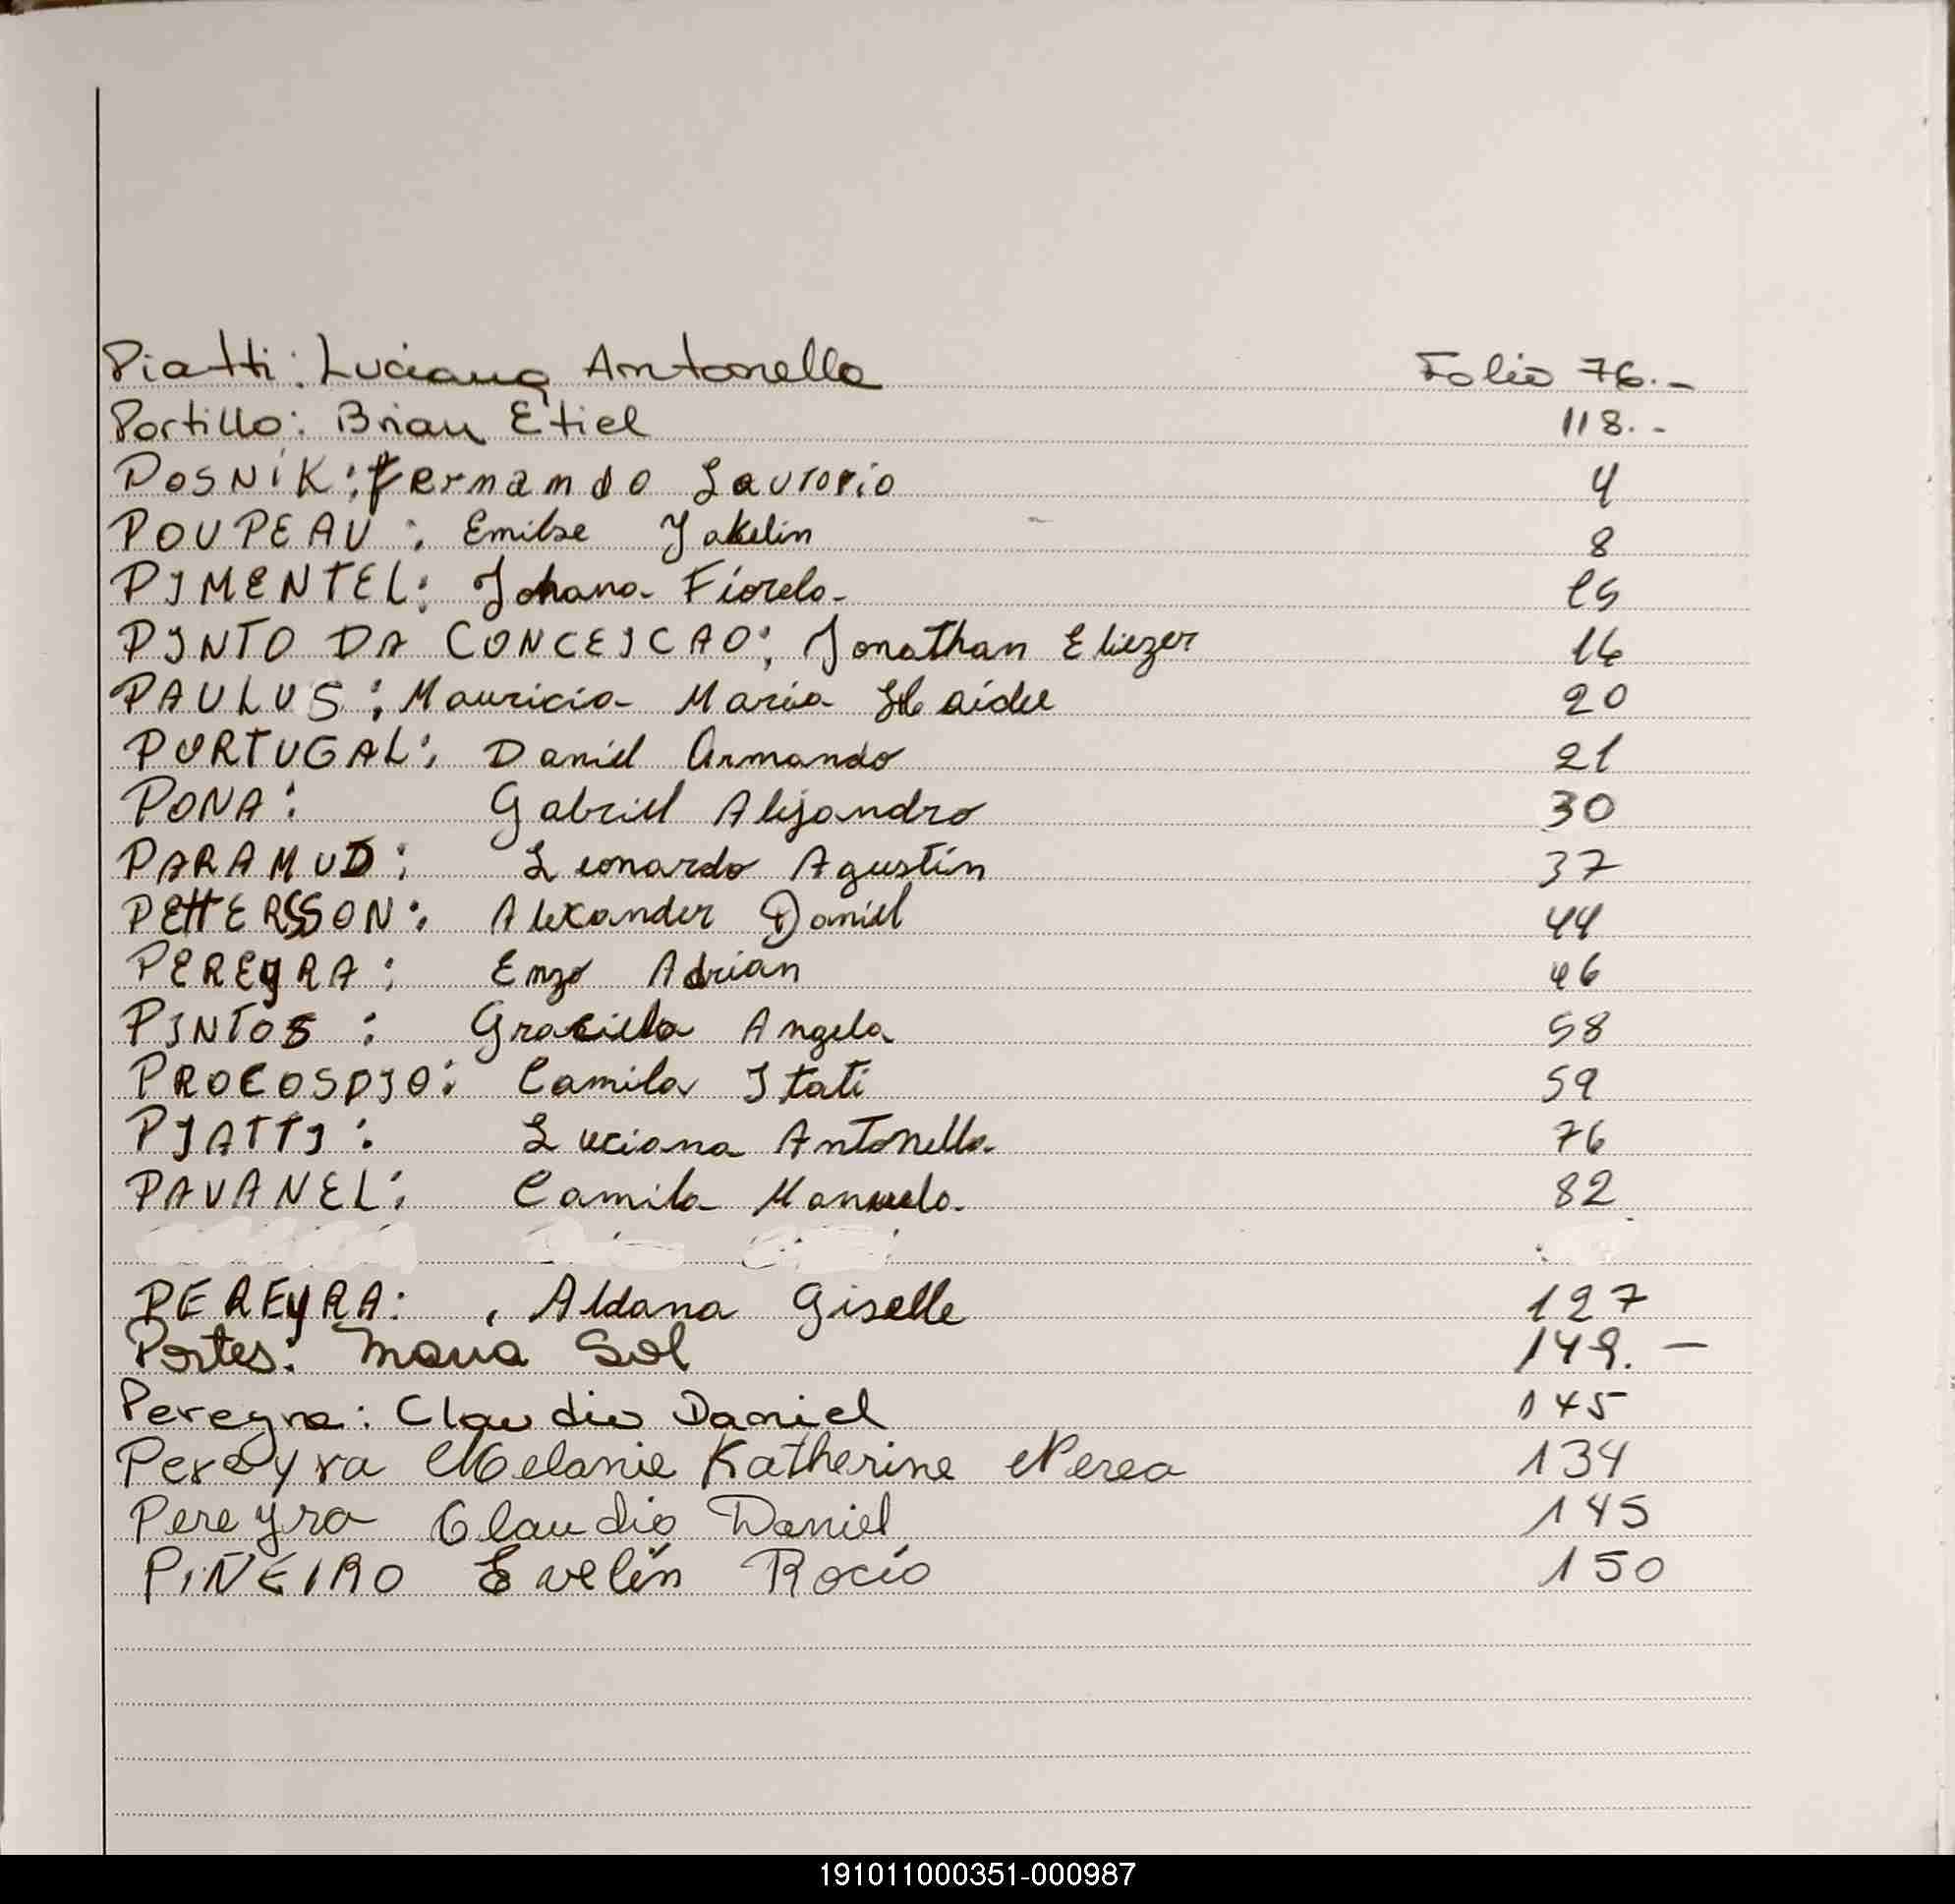 Piatti: Luciana Antonella Folio 76.-
Portillo: Brian Etiel 118.-
POSNIK: Fernando Lautorio 4
POUPEAU: Emilse Jakelin 8
PIMENTEL: Johana Fiorela 15
PINTO DA CONCEICAO: Jonathan Eliezer 16
PAULUS: Mauricia Maria Haidee 20
PORTUGAL: Daniel Armando 21
PONA: Gabriel Alejandro 30
PARAMUD: Leonardo Agustín 37
PETTERSSON: Alexander Daniel 44
PEREYRA: Enzo Adrian 46
PINTOS: Graciela Angela 58
PROCOSPIO: Camila Itati 59
PIATTI: Luciana Antonella 76
PAVANEL: Camila Manuela 82
PEREYRA: , Aldana Giselle 127
Portes: Maria Sol 149.-
Pereyra: Claudio Daniel 145
Pereyra Melanie Katherine Nerea 134
Pereyra Claudio Daniel 145
PIÑEIRO Evelín Rocío 150
191011000351-000987